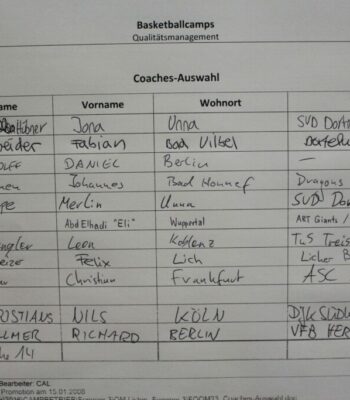 Basketballcamps
Qualitätsmanagement
Coaches-Auswahl
ame Vorname Wohnort
Hübner Jona Unna SVD Dort
eider Fabian Bad Vilbel
OLFF DANIEL Berlin —
men Johannes Bad Honnef Dragons
pe Merlin Unna SVD Do
Abd Elhadi "Eli" Wuppertal ART Giants /
ngler Leon Koblenz TuS Treis
eizer Felix Lich Licher B
er Christian Frankfurt ASC
RISTIANS NILS KÖLN DJK SÜD
LLMER RICHARD BERLIN VFB HER
14
Bearbeiter: CAL
Promotion am 15.01.2008
Coaches-Auswahl.doc